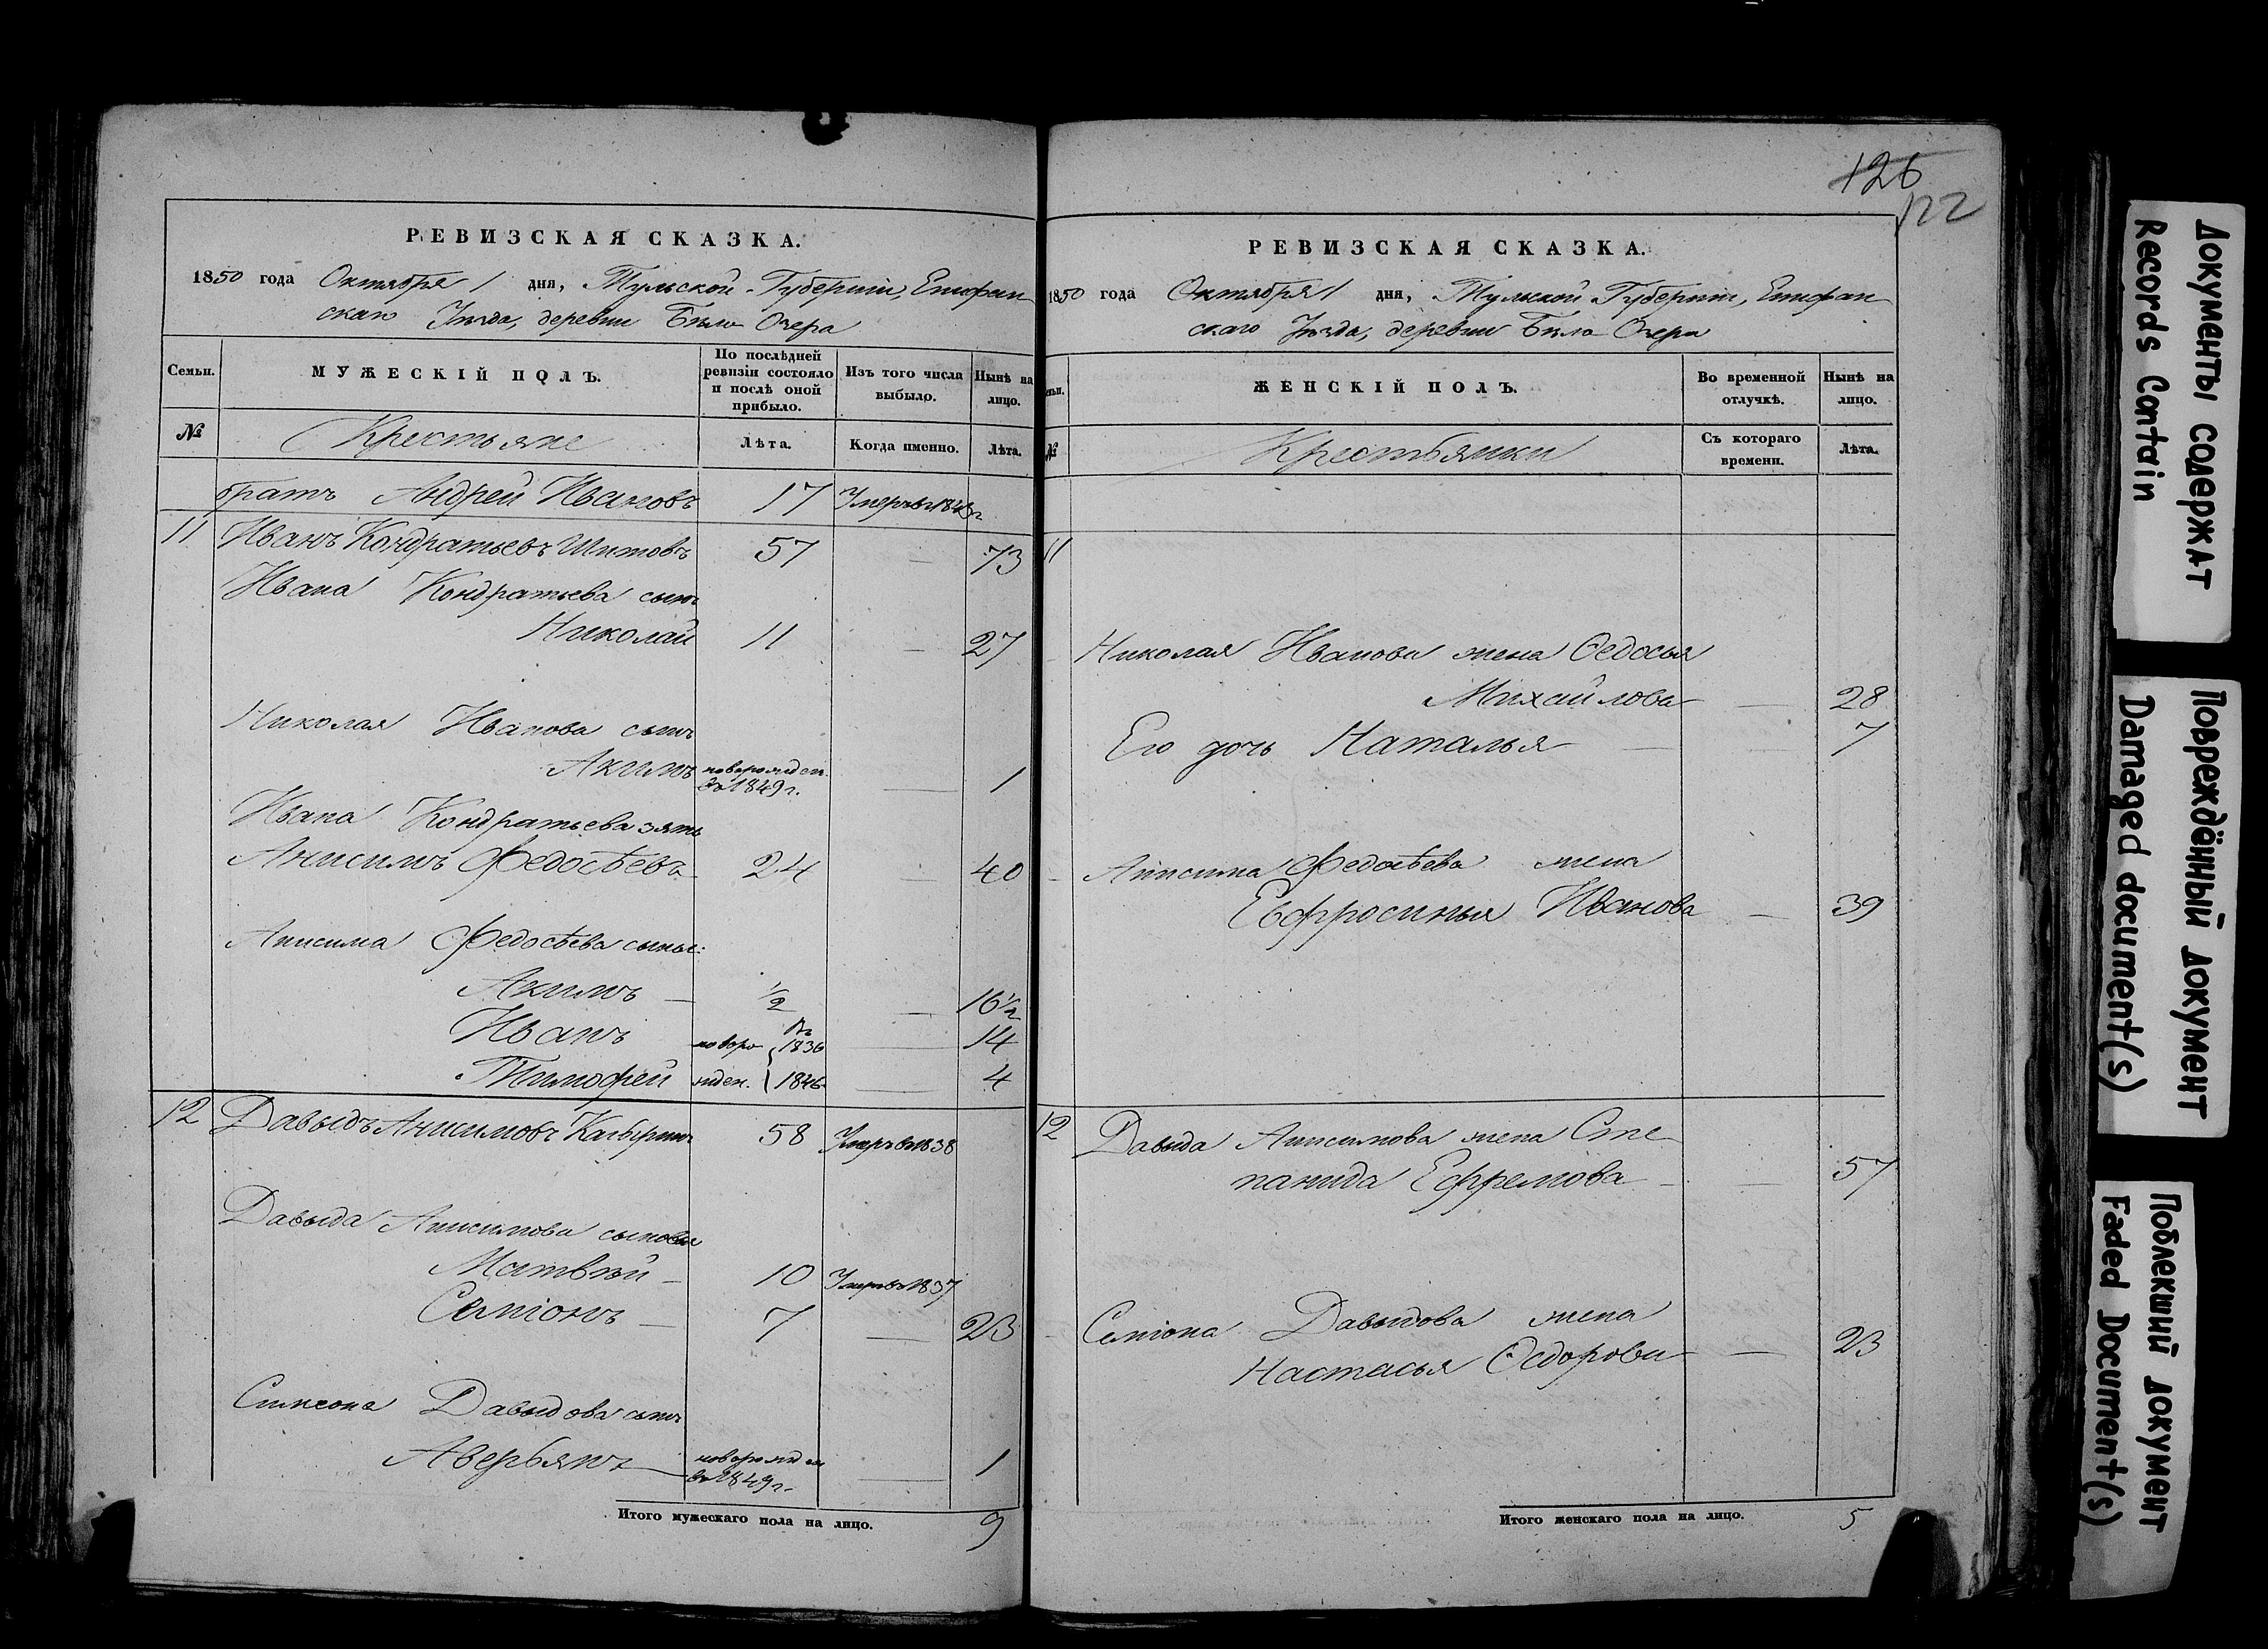 126
122
РЕВИЗСКАЯ СКАЗКА.
1850 года Октября 1 дня, Тульской Губернии, Епифан
скаго Уѣзда, деревни Бѣло Озера
Семьи.
МУЖЕСКІЙ ПОЛЪ.
По послѣдней ревизіи состояло и послѣ оной прибыло.
Изъ того числа выбыло.
Нынѣ на лицо.
№
Крестьяне
Лѣта.
Когда именно.
Лѣта.
братъ Андрей Ивановъ 17 Умеръ въ
11 Иванъ Кондратьевъ Шитовъ 57 — 73
Ивана Кондратьева сынъ
Николай 11 — 27
Николая Иванова сынъ
Акимъ новорожден. — 1
въ 1849 г.
Ивана Кондратьева зять
Анисимъ Ѳедосѣевъ 24 — 40
Анисима Ѳедосѣева сыны:
Акимъ — 1/2 — 16 1/2
Иванъ новоро въ 1836 — 14
Тимофей жден. 1846 — 4
12 Давыдъ Анисимовъ 58 Умеръ въ 1838
Давыда Анисимова сыновья
Матвѣй — 10 Умеръ въ 1837
Семіонъ — 7 — 23
Симеона Давыдова сынъ
Аверьянъ — новорожден — 1
въ 1849 г.
Итого мужескаго пола на лицо. 9
РЕВИЗСКАЯ СКАЗКА.
1850 года Октября 1 дня, Тульской Губернии, Епифан
скаго Уѣзда, деревни Бѣло Озера
ЖЕНСКІЙ ПОЛЪ.
Во временной отлучкѣ.
Нынѣ на лицо.
№
Крестьянки
Съ котораго времени.
Лѣта.
11
Николая Иванова жена Ѳедосья
Михайлова — 28
Его дочь Наталья — 7
Анисима Ѳедосѣева жена
Евфросинья Иванова — 39
12 Давыда Анисимова жена Сте
панида Ефремова — 57
Семіона Давыдова жена
Настасья Ѳедорова — 23
Итого женскаго пола на лицо. 5
Документы содержат
Records Contain
Повреждённый документ
Damaged document(s)
Поблекший документ
Faded Document(s)